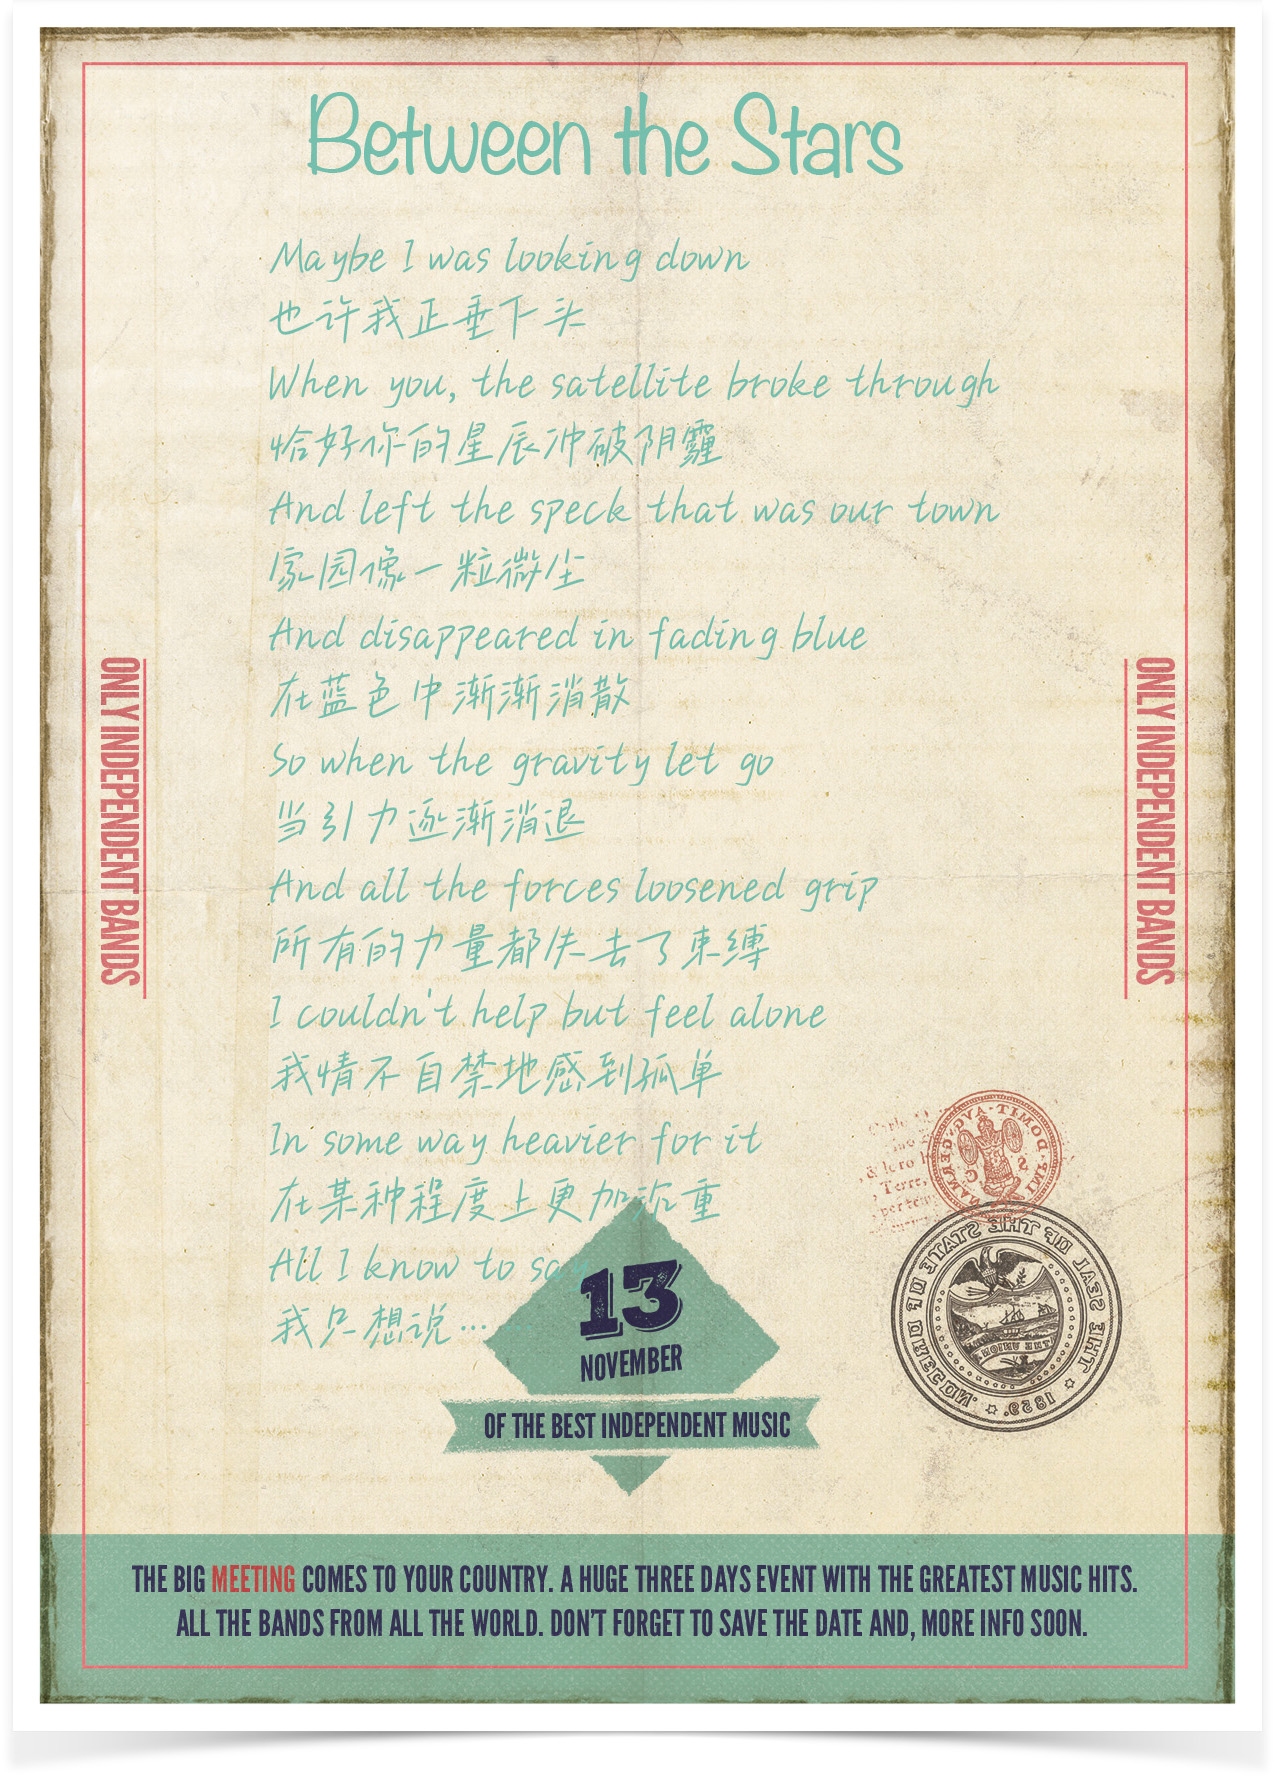 Between the Stars
Maybe I was looking down
也许我正垂下头
When you, the satellite broke through
恰好你的星辰冲破阴霾
And left the speck that was our town
家园像一粒微尘
And disappeared in fading blue
在蓝色中渐渐消散
So when the gravity let go
当引力逐渐消退
And all the forces loosened grip
所有的力量都失去了束缚
I couldn't help but feel alone
我情不自禁地感到孤单
In some way heavier for it
在某种程度上更加沉重
All I know to say
我只想说…
ONLY INDEPENDENT BANDS
ONLY INDEPENDENT BANDS
IMP. DOMIT. AVG. GERMAN
S C
& le ro
Terre,
THE SEAL OF THE STATE OF OREGON.
THE UNION
1859.
13
NOVEMBER
OF THE BEST INDEPENDENT MUSIC
THE BIG MEETING COMES TO YOUR COUNTRY. A HUGE THREE DAYS EVENT WITH THE GREATEST MUSIC HITS.
ALL THE BANDS FROM ALL THE WORLD. DON'T FORGET TO SAVE THE DATE AND, MORE INFO SOON.